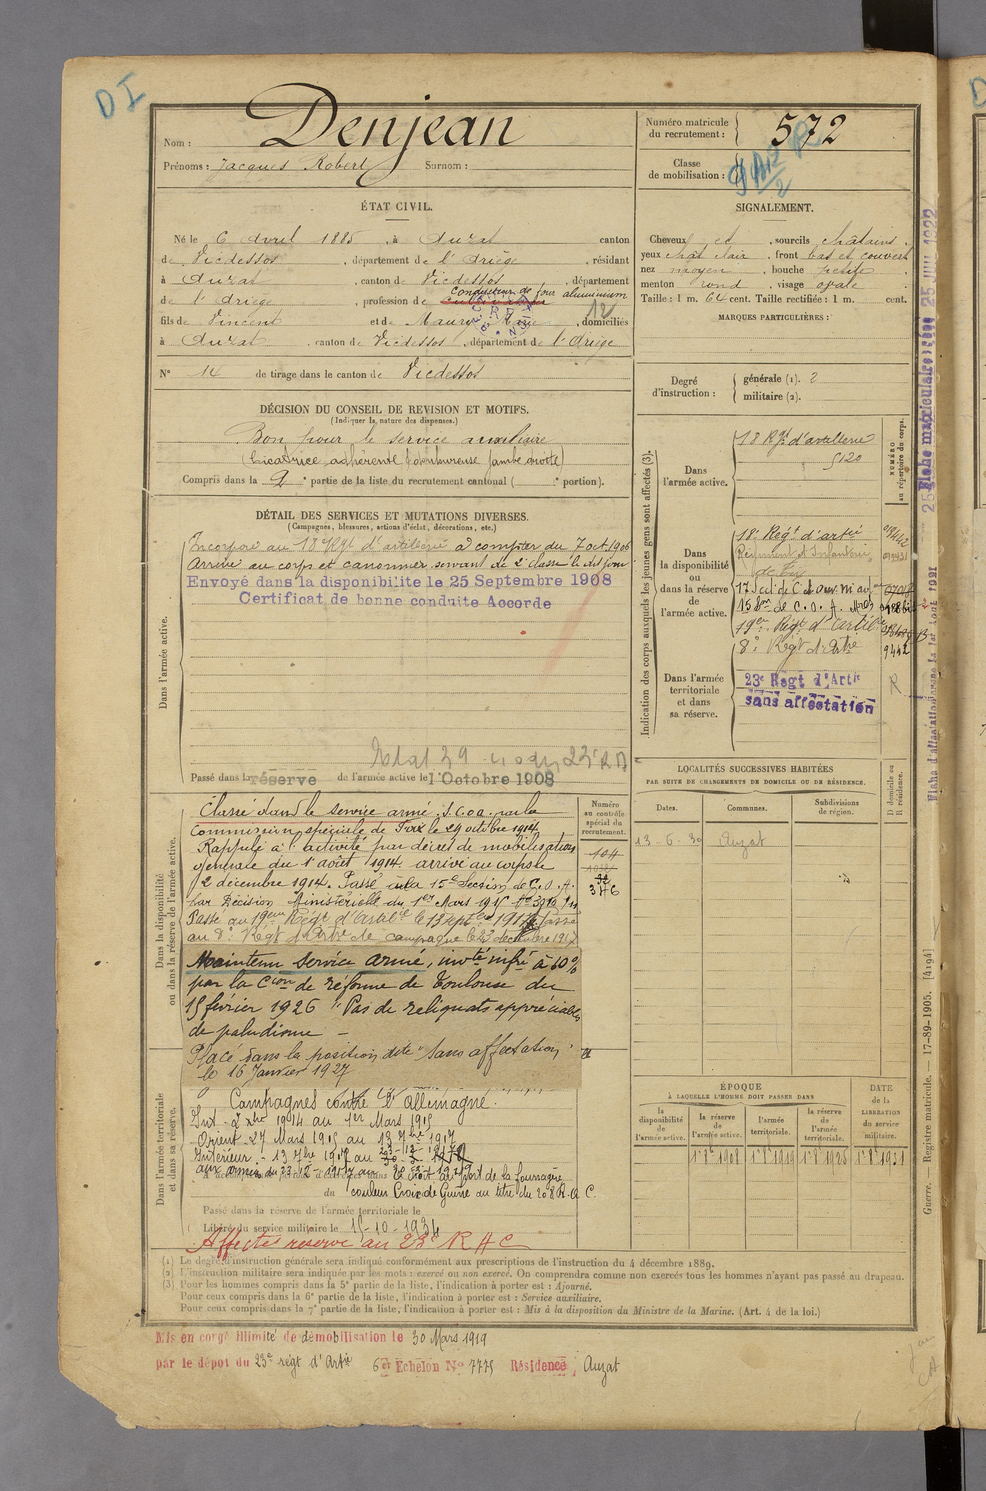 DI
Nom : Denjean
Prénoms : Jacques Robert Surnom :
Numéro matricule du recrutement : 572
Classe de mobilisation :
ÉTAT CIVIL.
Né le 6 avril 1885, à Auzat canton
de Vicdessos, département de l'Ariège, résidant
à Auzat, canton de Vicdessos, département
de l'Ariège, profession de cultivateur conducteur de four aluminium
fils de Vincent et de Maury Marie, domiciliés
à Auzat, canton de Vicdessos, département de l'Ariège
N° 14 de tirage dans le canton de Vicdessos
SIGNALEMENT.
Cheveux et, sourcils châtains,
yeux chât clair, front bas et couvert
nez moyen, bouche petite
menton rond, visage ovale
Taille : 1 m. 64 cent. Taille rectifiée : 1 m. cent.
MARQUES PARTICULIÈRES :
Degré d'instruction : générale (1). 2
militaire (2).
DÉCISION DU CONSEIL DE REVISION ET MOTIFS.
(Indiquer la nature des dispenses.)
Bon pour le service auxiliaire
(cicatrice adhérente jambe droite)
Compris dans la 2e partie de la liste du recrutement cantonal ( e portion).
DÉTAIL DES SERVICES ET MUTATIONS DIVERSES.
(Campagnes, blessures, actions d'éclat, décorations, etc.)
Dans l'armée active.
Incorporé au 18e Régt d'artillerie à compter du 7 oct. 1906
Arrivé au corps et canonnier servant de 2e classe le dit jour
Envoyé dans la disponibilité le 25 Septembre 1908
Certificat de bonne conduite Accordé
Passé dans la réserve de l'armée active le 1 Octobre 1908
Indication des corps auxquels les jeunes gens sont affectés (3).
Dans l'armée active.
18 Rgt d'artillerie
5120
NUMÉRO au répertoire du corps.
Dans la disponibilité ou dans la réserve de l'armée active.
18e Régt d'artie
Régiment d'Infanterie
19er Régt d'Artil
8e Régt d'Artie
9442
Dans l'armée territoriale et dans sa réserve.
23e Régt d'Artie
sans affectation
Dans la disponibilité ou dans la réserve de l'armée active.
Classé dans le service armé, par la
Commission spéciale de Foix le 29 octobre 1914
Rappelé à l'activité par décret de mobilisation
générale du 1er août 1914. arrivé au corps le
2 décembre 1914. Passé à la 15e Section de C.O.A.
par Décision Ministérielle du 1er Mars 1915
Passé au 19eme Régt d'Artil le 13 Septbre 1917. Passé
au 8e Régt d'Artie de campagne le 23 décembre 1917
Numéro au contrôle spécial du recrutement.
104
346
Maintenu Service armé, invté infre à 10%
par la Cion de réforme de Toulouse du
15 février 1926 "Pas de reliquats appréciables
de paludisme –
Placé dans la position dite "Sans affectation"
le 16 Janvier 1927
Dans l'armée territoriale et dans sa réserve.
Campagnes contre l'Allemagne.
Int. 2 Xbre 1914 au 1er Mars 1915
Orient 27 Mars 1915 au 13 7bre 1917
Intérieur : 13 7bre 1917 au 23-12-1917
aux armées du 23-12-1917 au
a droit au port de la fourragère
couleur Croix de Guerre au titre du 208 R.A.C.
Passé dans la réserve de l'armée territoriale le
Libéré du service militaire le 15-10-1934
Affecté réserve au 23e R A C
LOCALITÉS SUCCESSIVES HABITÉES
PAR SUITE DE CHANGEMENTS DE DOMICILE OU DE RÉSIDENCE.
Dates. Communes. Subdivisions de région. D domicile ou R résidence.
13-6-30 Auzat
ÉPOQUE
À LAQUELLE L'HOMME DOIT PASSER DANS
la disponibilité de l'armée active. la réserve de l'armée active. l'armée territoriale. la réserve de l'armée territoriale.
DATE de la LIBÉRATION du service militaire.
1er 8bre 1908 1er 8bre 1919 1er 8bre 1926 1er 8bre 1931
(1) Le degré d'instruction générale sera indiqué conformément aux prescriptions de l'instruction du 4 décembre 1889.
(2) L'instruction militaire sera indiquée par les mots : exercé ou non exercé. On comprendra comme non exercés tous les hommes n'ayant pas passé au drapeau.
(3) Pour les hommes compris dans la 5e partie de la liste, l'indication à porter est : Ajourné.
Pour ceux compris dans la 6e partie de la liste, l'indication à porter est : Service auxiliaire.
Pour ceux compris dans la 7e partie de la liste, l'indication à porter est : Mis à la disposition du Ministre de la Marine. (Art. 4 de la loi.)
Mis en congé illimité de démobilisation le 30 Mars 1919
par le dépôt du 23e régt d'Artie 6e Echelon N° 7775 Résidence Auzat
Guerre. — Registre matricule. — 17-89-1905. [4194]